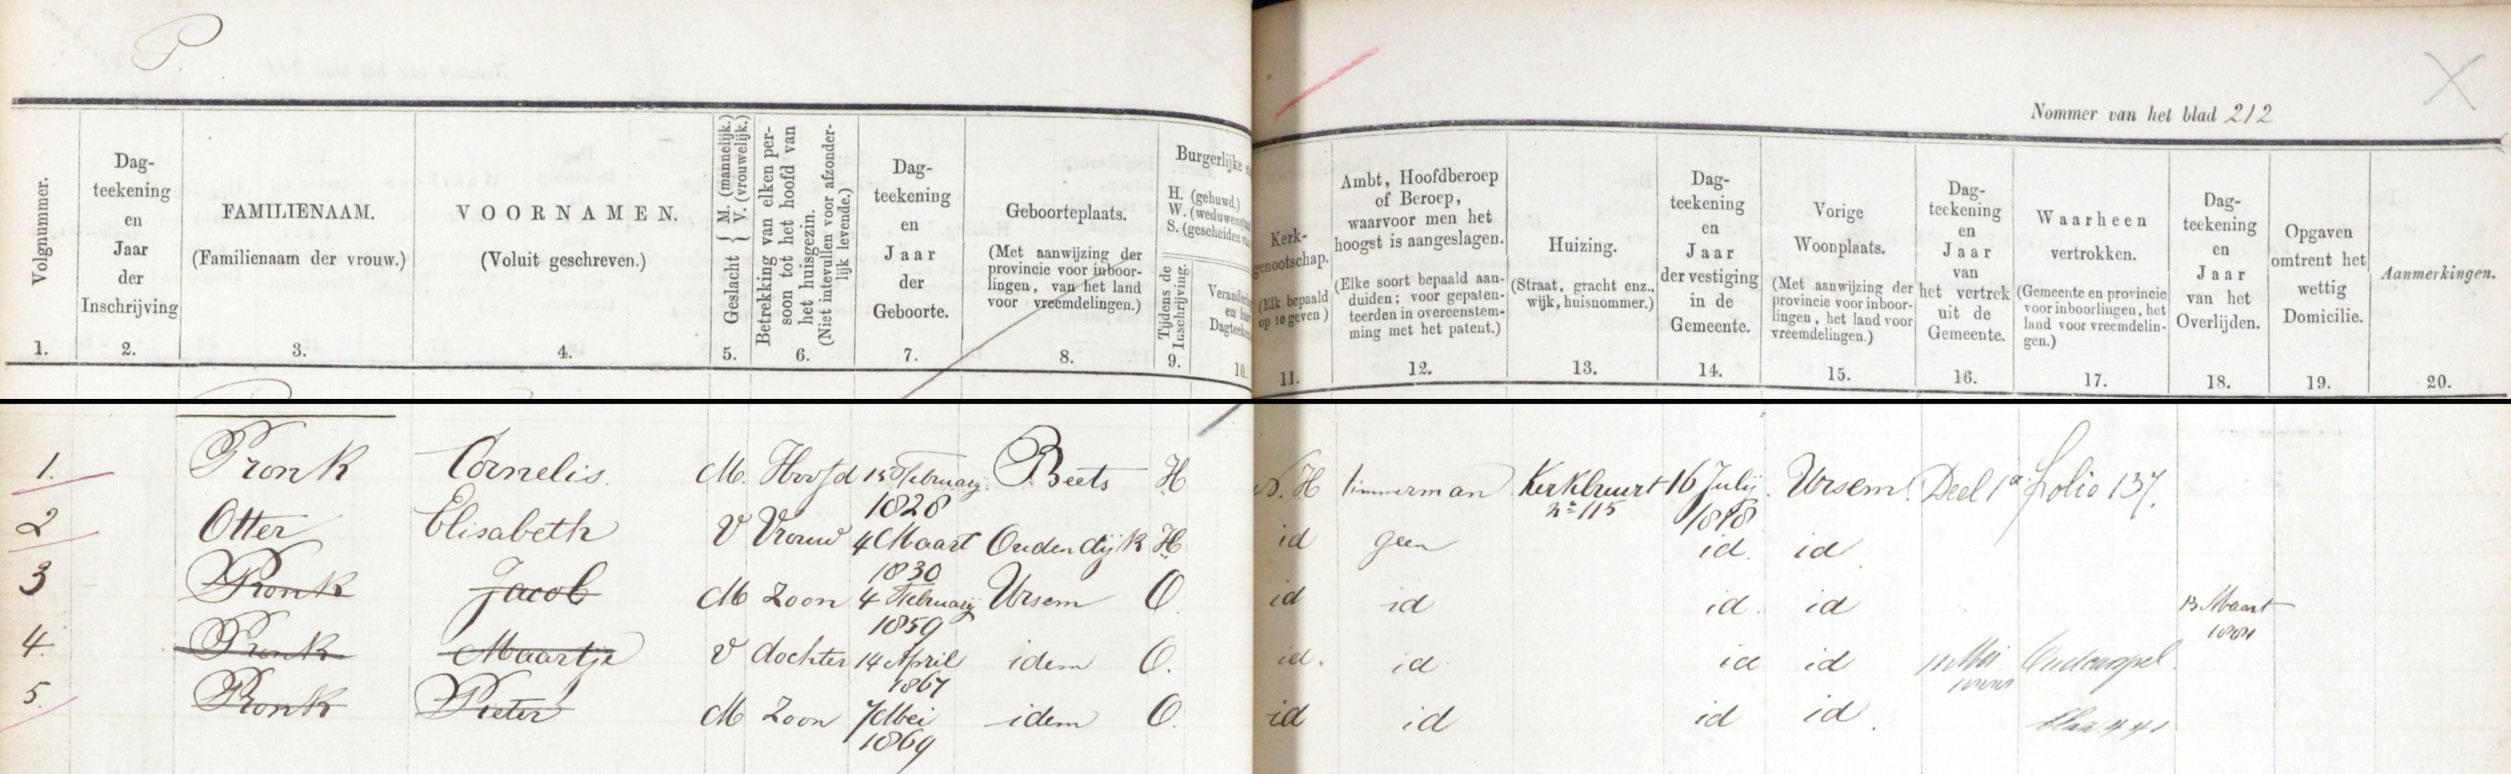 P.
Nommer van het blad 212
Volgnummer.
1.
Dag-
teekening
en
Jaar
der
Inschrijving
2.
FAMILIENAAM.
(Familienaam der vrouw.)
3.
VOORNAMEN.
(Voluit geschreven.)
4.
Geslacht { M. (mannelijk.)
V. (vrouwelijk.)
5.
Betrekking van elken per-
soon tot het hoofd van
het huisgezin.
(Niet intevullen voor afzonder-
lijk levende.)
6.
Dag-
teekening
en
Jaar
der
Geboorte.
7.
Geboorteplaats.
(Met aanwijzing der
provincie voor inboor-
lingen, van het land
voor vreemdelingen.)
8.
Burgerlijke
H. (gehuwd.)
W. (weduwen
S. (gescheiden
Tijdens de
Inschrijving.
9.
10.
Kerk-
genootschap.
(Elk bepaald
op te geven)
11.
Ambt, Hoofdberoep
of Beroep,
waarvoor men het
hoogst is aangeslagen.
(Elke soort bepaald aan-
duiden; voor gepaten-
teerden in overeenstem-
ming met het patent.)
12.
Huizing.
(Straat, gracht enz.,
wijk, huisnommer.)
13.
Dag-
teekening
en
Jaar
der vestiging
in de
Gemeente.
14.
Vorige
Woonplaats.
(Met aanwijzing der
provincie voor inboor-
lingen, het land voor
vreemdelingen.)
15.
Dag-
teekening
en
Jaar
van
het vertrek
uit de
Gemeente.
16.
Waarheen
vertrokken.
(Gemeente en provincie
voor inboorlingen, het
land voor vreemdelin-
gen.)
17.
Dag-
teekening
en
Jaar
van het
Overlijden.
18.
Opgaven
omtrent het
wettig
Domicilie.
19.
Aanmerkingen.
20.
1. Pronk Cornelis. M. Hoofd 15 February 1828 Beets H N.H timmerman Kerkbuurt no 115 16 July Ursem. Deel 1a folio 137.
2 Otter Elisabeth V Vrouw 4 Maart 1830 Oudendijk H id geen id. id
3 Pronk Jacob M Zoon 4 February 1859 Ursem O. id id id. id 13 Maart
4. Pronk Maartje V dochter 14 April 1867 idem O. id. id. id id Mei
5. Pronk Pieter M Zoon 7 Mei 1869 idem O. id id id id.